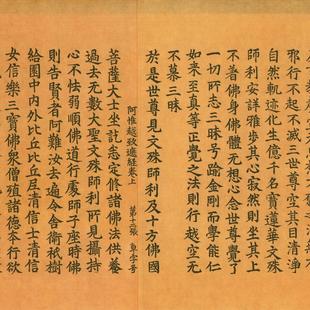 邪行不起不滅三世尊空其目清淨
自然軌迹化生億千名寶蓮華文殊
師利安詳雅步其心寂然則坐其上
不著佛身佛體无想心念世尊覺了
一切所志三昧号踰金剛而學能仁
如來至真等正覺之法則行越空无
不慕三昧
於是世尊見文殊師利及十方佛國
阿惟越致遮經卷上
菩薩大士坐訖悉定修諸佛法供養
過去无數大聖文殊師利所見攝持
心不怯弱順佛道行處師子座時佛
則告賢者阿難汝去遍令舍衛祇樹
給園中内外比丘比丘尼清信士清信
女信樂三寶佛衆僧殖諸德本行欲